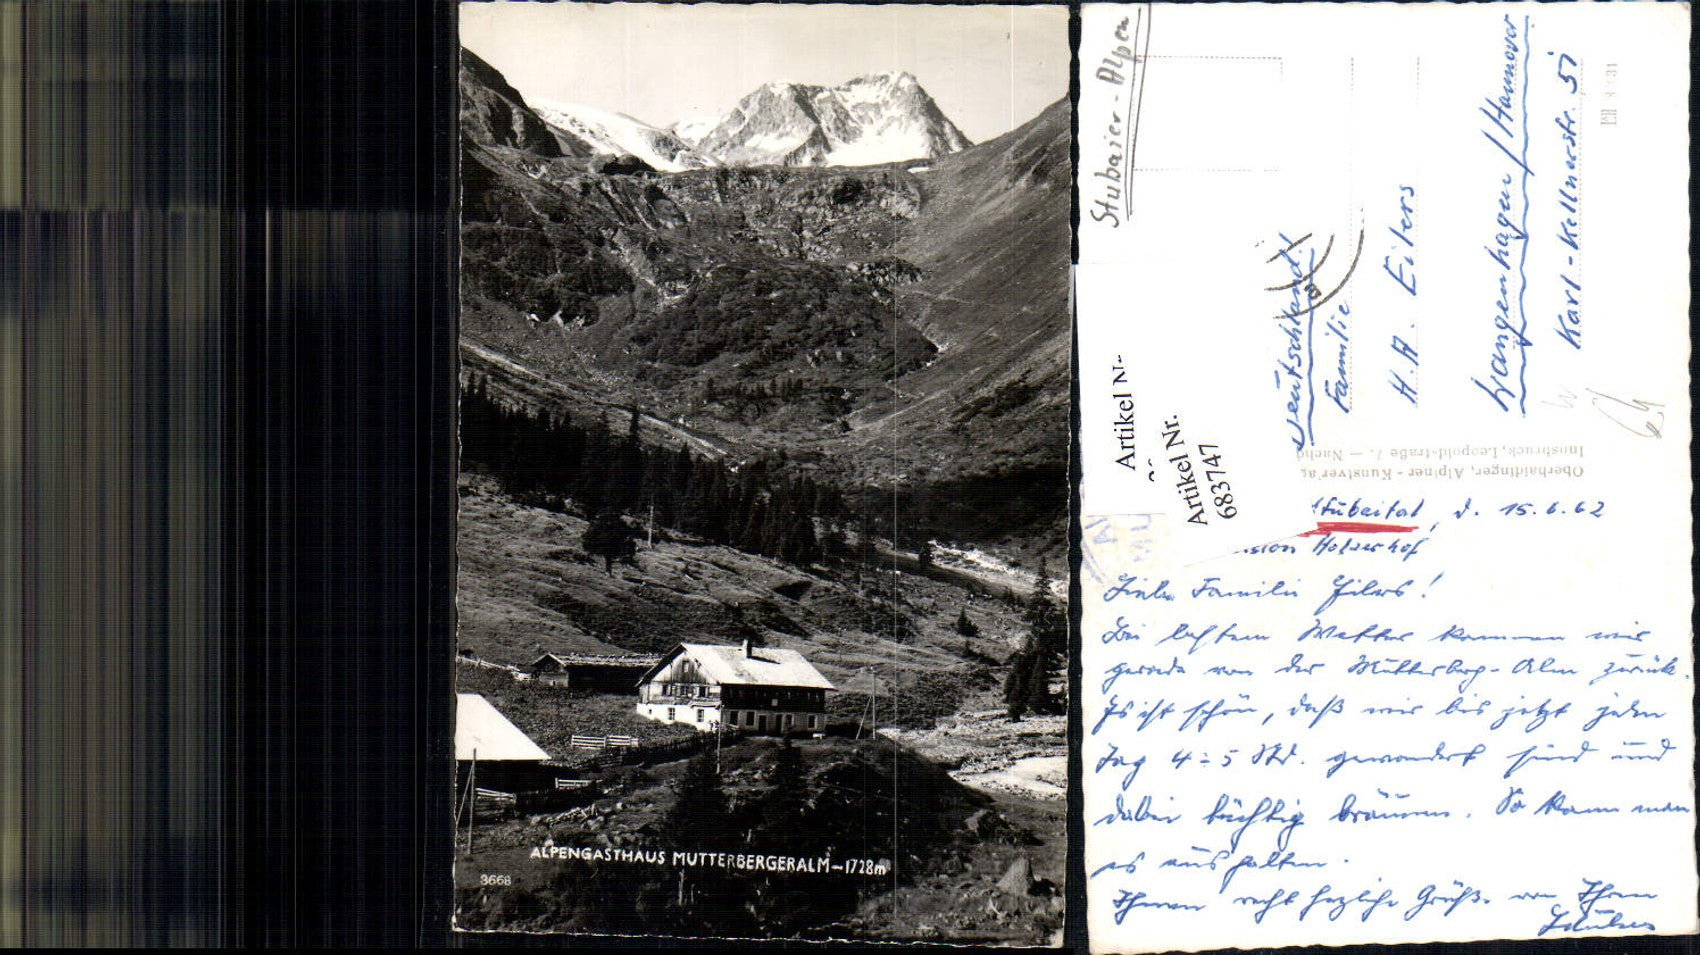 ALPENGASTHAUS MUTTERBERGERALM—1728m
3668
Stubaier-Alpen
Deutschland!
Familie
H. A. Eilers
Langenhagen/Hannover
Karl-Kellnerstr. 51
Artikel Nr.
Artikel Nr.
683747
Oberhaidinger, Alpiner-Kunstverlag
Innsbruck, Leopoldstraße 7. — Nachd
Stubaital, d. 15.6.62
Holzerhof
Liebe Familie Eilers!
Bei bestem Wetter kommen wir
gerade von der Mutterberg-Alm zurück.
Es ist schön, daß wir bis jetzt jeden
Tag 4-5 Std. gewandert sind und
dabei tüchtig bräunen. So kann man
es aushalten.
Ihnen recht herzliche Grüße von Ihren